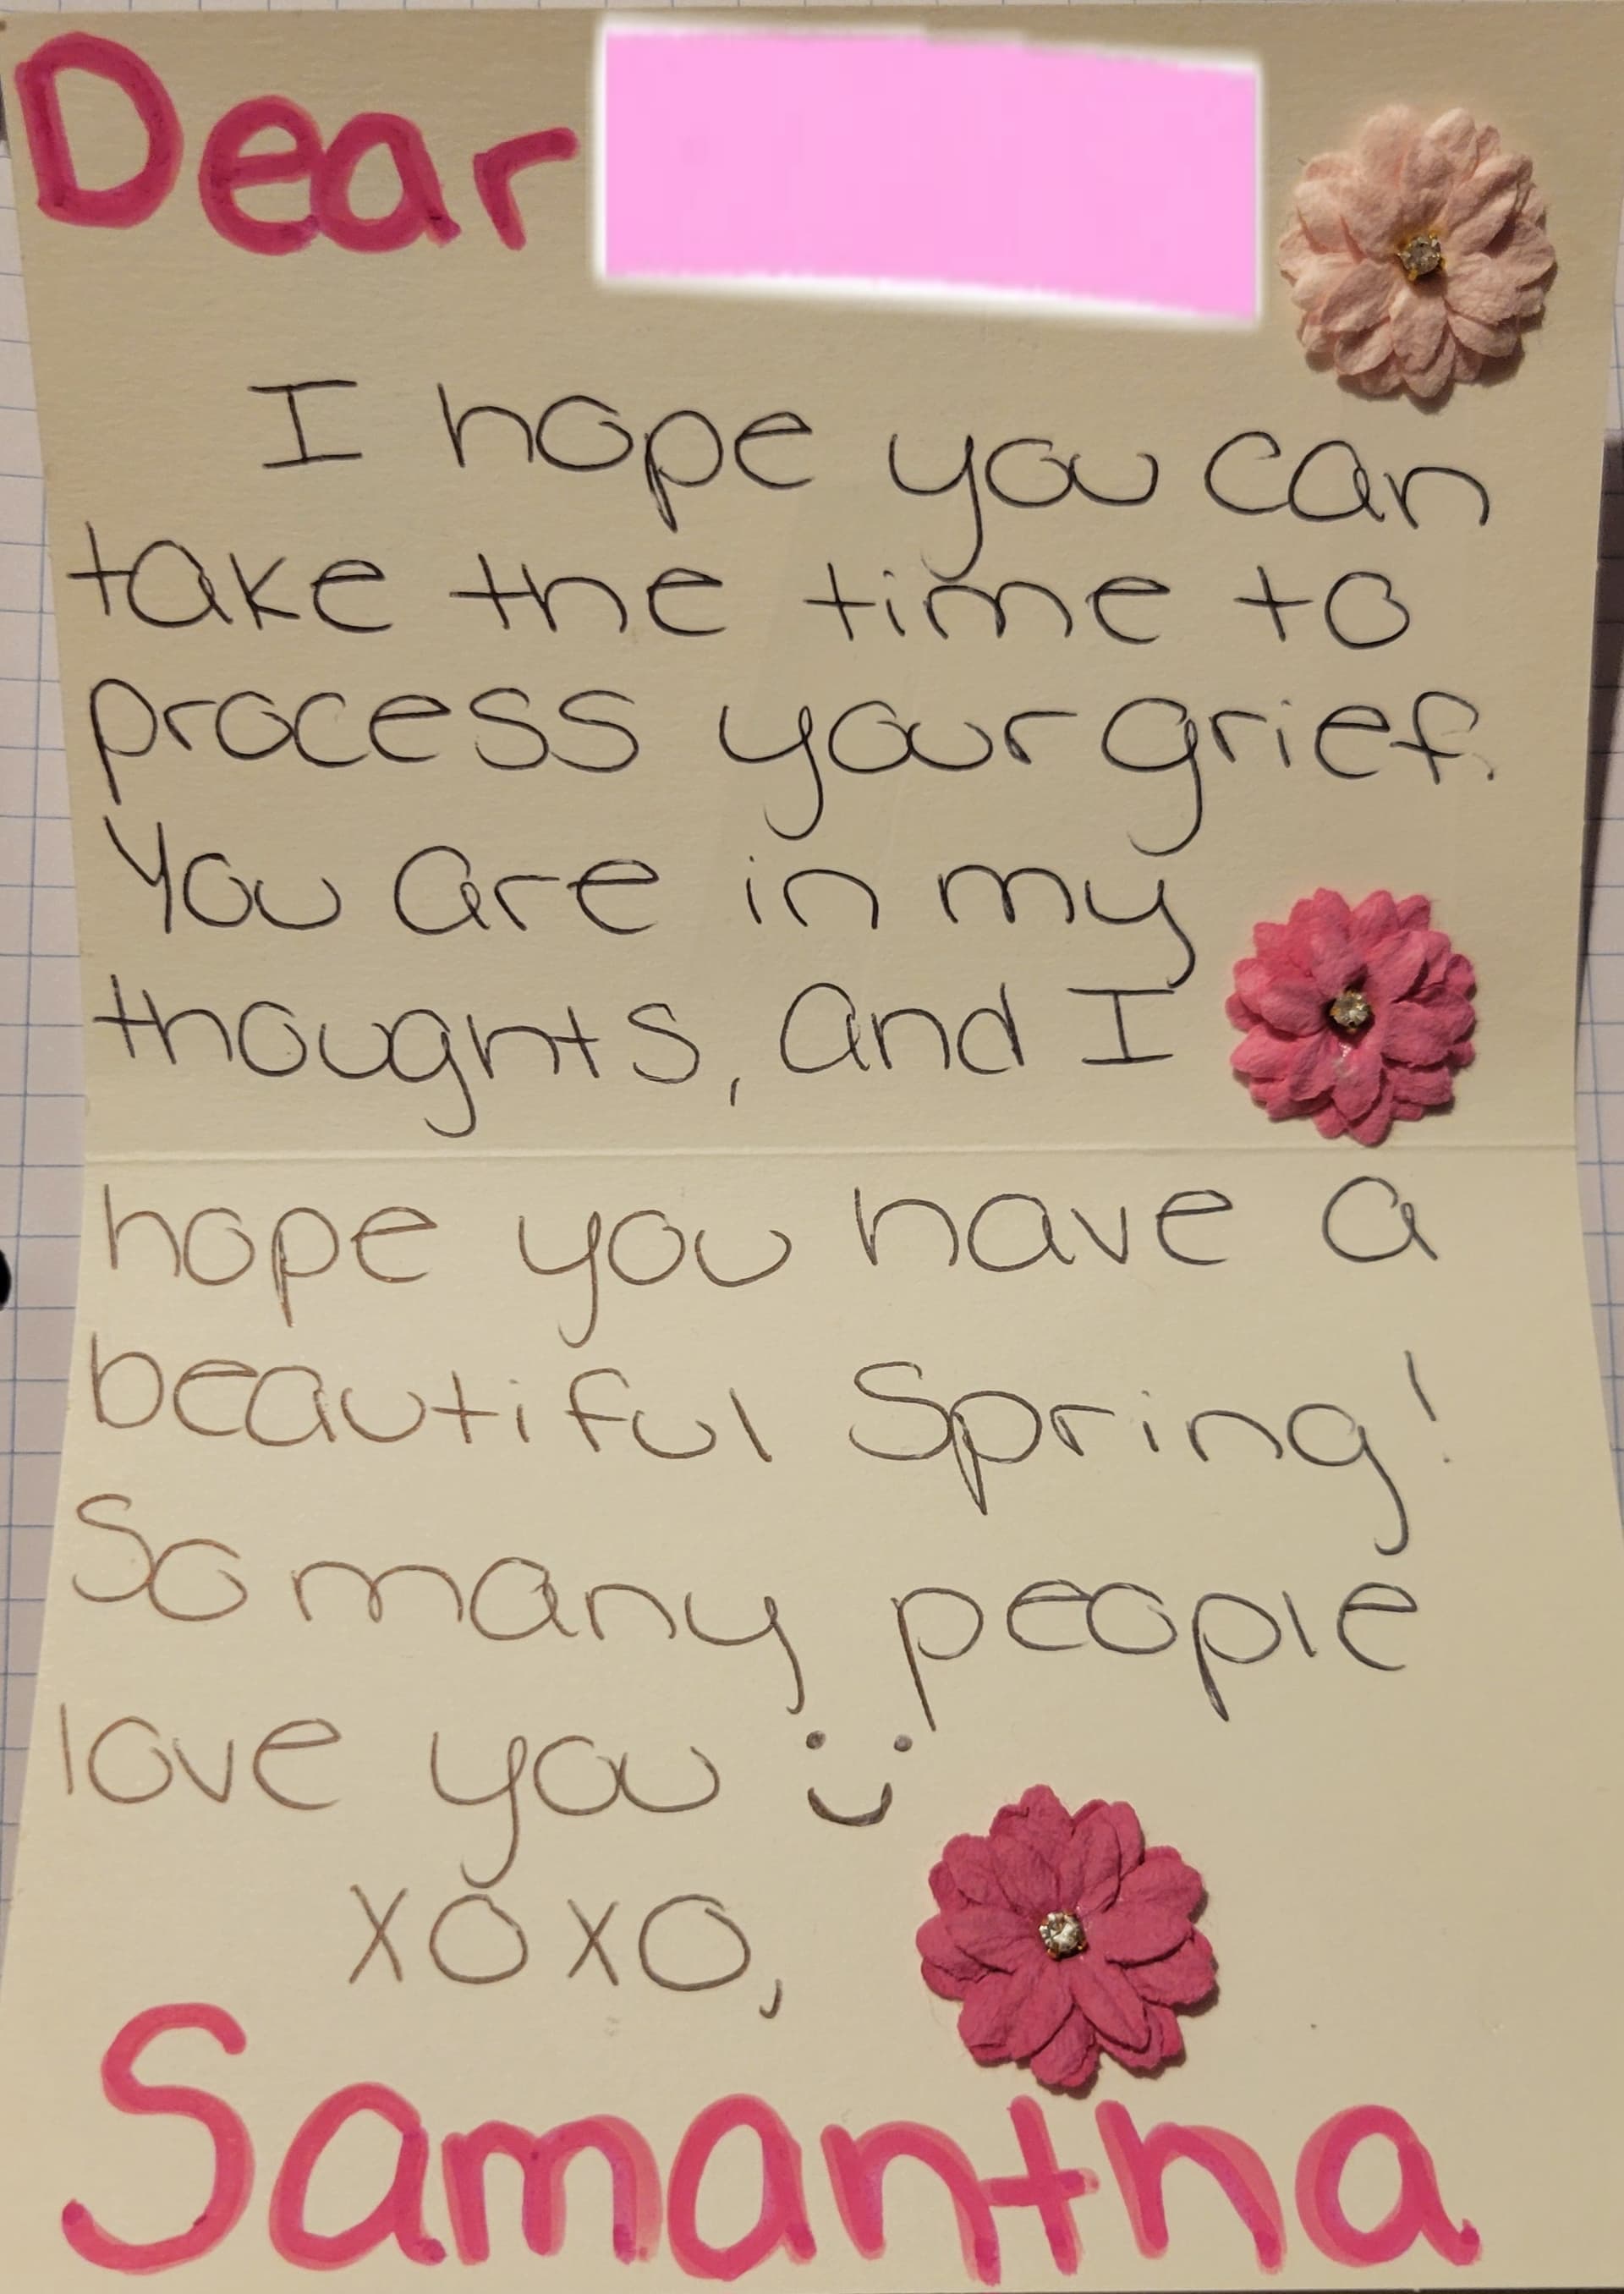 Dear
I hope you can
take the time to
process your grief.
You are in my
thoughts, and I
hope you have a
beautiful Spring!
So many people
love you :)
XOXO,
Samantha